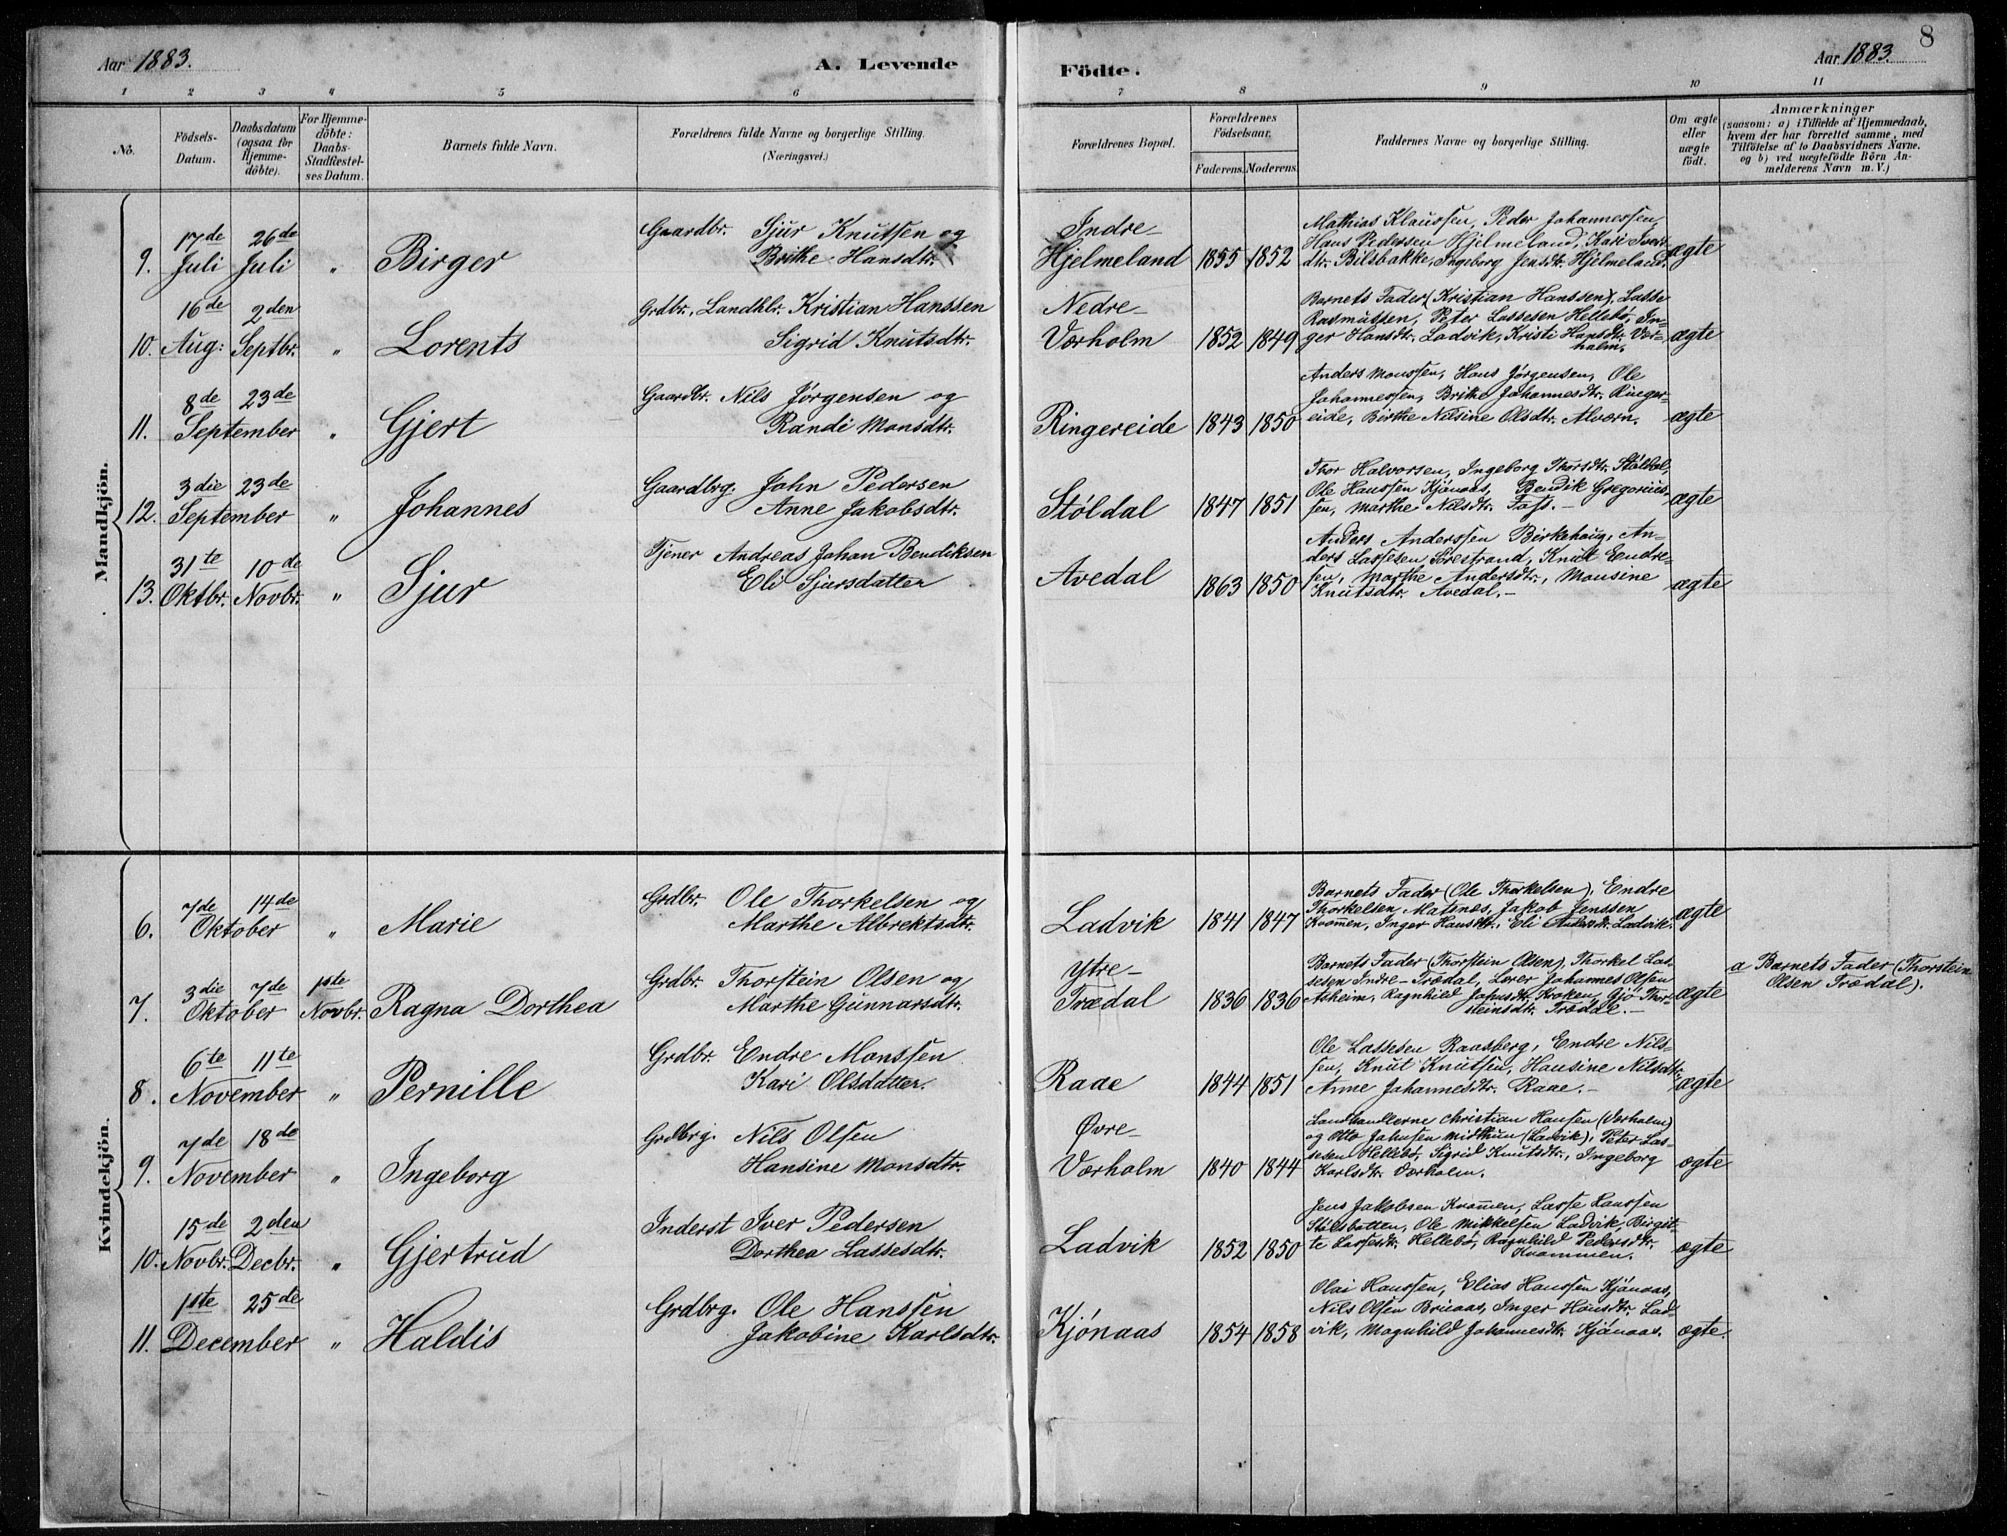 8
Aar 1883. A. Levende Födte. Aar 1883.
1 2 3 4 5 6 7 8 9 10 11
No.
Födsels-
Datum.
Daabsdatum
(ogsaa for
Hjemme-
döbte).
For Hjemme-
döbte:
Daabs-
Stadfæstel-
ses Datum.
Barnets fulde Navn.
Forældrenes fulde Navne og borgerlige Stilling.
(Næringsvei.)
Forældrenes Bopæl.
Forældrenes
Födselsaar.
Faderens. Moderens.
Faddernes Navne og borgerlige Stilling.
Om ægte
eller
uægte
födt.
Anmærkninger
(saasom: a) i Tilfælde af Hjemmedaab,
hvem der har forrettet samme, med
Tilföielse af to Daabsvidners Navne.
og b) ved uægtefödte Börn An-
melderens Navn m.V.)
Mandkjön.
9. 17de Juli 26de Juli " Birger
Gaardbr. Sjur Knutsen og
Brithe Hansdtr.
Indre-
Hjelmeland 1855 1852
Mathias Klaussen, Peder Johannessen,
Hans Pedersen Hjelmeland, Kari Ivers-
dtr. Bilsbakke, Ingeborg Jensdtr. Hjelmeland.
ægte
10. 16de Aug: 2den Septbr. " Lorents
Grdbr., Landhlr. Kristian Hanssen
Sigrid Knutsdtr.
Nedre-
Værholm 1852 1849
Barnets Fader (Kristian Hanssen), Lasse
Rasmussen, Peter Lassesen Hellebø, In-
ger Hansdtr. Ladvik, Kristi Hansdtr. Vær-
holm.
ægte
11. 8de 23de September " Gjert
Gaardbr. Nils Jørgensen og
Randi Monsdtr.
Ringereide 1843 1850
Anders Monssen, Hans Jørgensen, Ole
Johannessen, Brithe Johannesdtr. Ringer-
eide, Birthe Nilsine Olsdtr. Alværn.
ægte
12. 3die 23de September " Johannes
Gaardbrg. John Pedersen
Anne Jakobsdtr.
Støldal 1847 1851
Thor Halvorsen, Ingeborg Thorsdtr. Støldal,
Ole Hanssen Kjønaas, Bendik Gregorius-
sen, Marthe Nilsdtr. Foss.-
ægte
13. 31te Oktbr. 10de Novbr. " Sjur
Tjener Andreas Johan Bendiksen
Eli Sjursdatter
Avedal 1863 1850
Anders Anderssen Birkehaug, An-
ders Lassesen Sørestrand, Knut Endre-
sen, Marthe Andersdtr., Monsine
Knutsdtr. Avedal.-
ægte
Kvindekjön.
6. 7de 14de Oktober " Marie
Grdbr. Ole Thorkelsen og
Marthe Albrektsdtr.
Ladvik 1841 1847
Barnets Fader (Ole Thorkelsen), Endre
Thorkelsen Matsnes, Jakob Jenssen
Kvommen, Inger Hansdtr., Eli Andersdtr. Ladvik.
ægte
7. 3die 7de Oktober 1ste Novbr. Ragna Dorthea
Grdbr. Thorstein Olsen og
Marthe Gunnarsdtr.
Ytre-
Trædal 1836 1836
Barnets Fader (Thorstein Olsen), Thorkel Las-
sesen Indre-Trædal, Lærer Johannes Olsen
Asheim, Ragnhild Johnsdtr. Kroken, Gjø Thor-
steinsdtr. Trædal.-
ægte
a Barnets Fader (Thorstein
Olsen Trædal).
8. 6te 11te November " Pernille
Grdbr. Endre Monssen
Kari Olsdatter.
Raae 1844 1851
Ole Lassesen Raasberg, Endre Nils-
sen, Knut Knutsen, Hansine Nilsdtr.,
Anne Johannesdtr. Raae.-
ægte
9. 7de 18de November " Ingeborg
Grdbrg. Nils Olsen
Hansine Monsdtr.
Øvre-
Værholm 1840 1844
Landhandlerne Christian Hansen (Værholm)
og Otto Johnsen Midthun (Ladvik), Peter Las-
sesen Hellebø, Sigrid Knutsdtr., Ingeborg
Karlsdtr. Værholm.
ægte
10. 15de Novbr. 2den Decbr. " Gjertrud
Inderst Iver Pedersen
Dorthea Lassesdtr.
Ladvik 1852 1850
Jens Jakobsen Kvommen, Lasse Hanssen
Stølsbotten, Ole Mikkelsen Ladvik, Birgit-
te Lassesdtr. Hellebø, Ragnhild Pedersdtr.
Kvammen.
ægte
11. 1ste 25de December " Haldis
Grdbrg. Ole Hanssen
Jakobine Karlsdtr.
Kjønaas 1854 1858
Olai Hanssen, Elias Hanssen Kjønaas,
Nils Olsen Bruaas, Inger Hansdtr. Lad-
vik, Magnhild Johannesdtr. Kjønaas.
ægte.